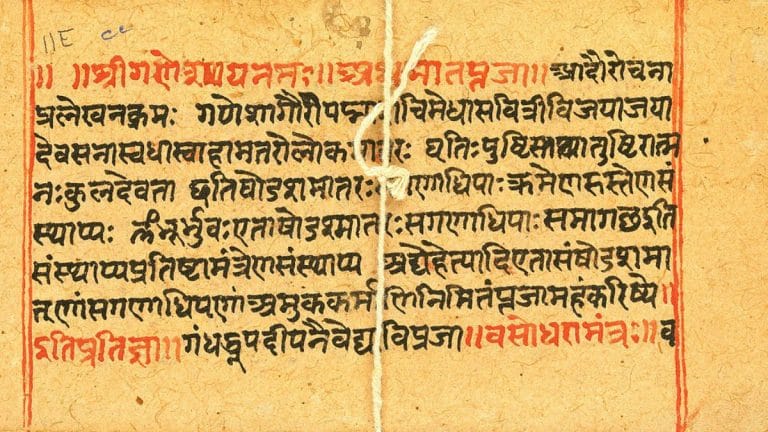 ॥E
॥ ॥श्रीगणेशायनमः॥ ॥आदौरोचना
प्रलेखनक्रमः गणेशगौरी मेधासवित्रीविजयाजया
देवसेनास्वधास्वाहामातरोलोकमातरः धृतिःपुष्टिस्तथातुष्टिरात्म
नःकुलदेवता इतिषोडशमातरःसगणाधिपाःक्रमेणहस्तेनसं
स्थाप्यः ॐभूर्भुवःएताषोडशमातरःसगणाधिपाःसमागछइति
संस्थाप्यप्रतिष्टामंत्रेणसंस्थाप्य अद्येहेत्यादिएतासंषोडशमा
तृणांसगणाधिपणां अमुककर्मणिनिमितंपूजामहंकरिष्ये॥
इतिप्रतिज्ञा॥ गंधधूपदीपनैवेद्य ॥वसोधारामंत्रः॥व